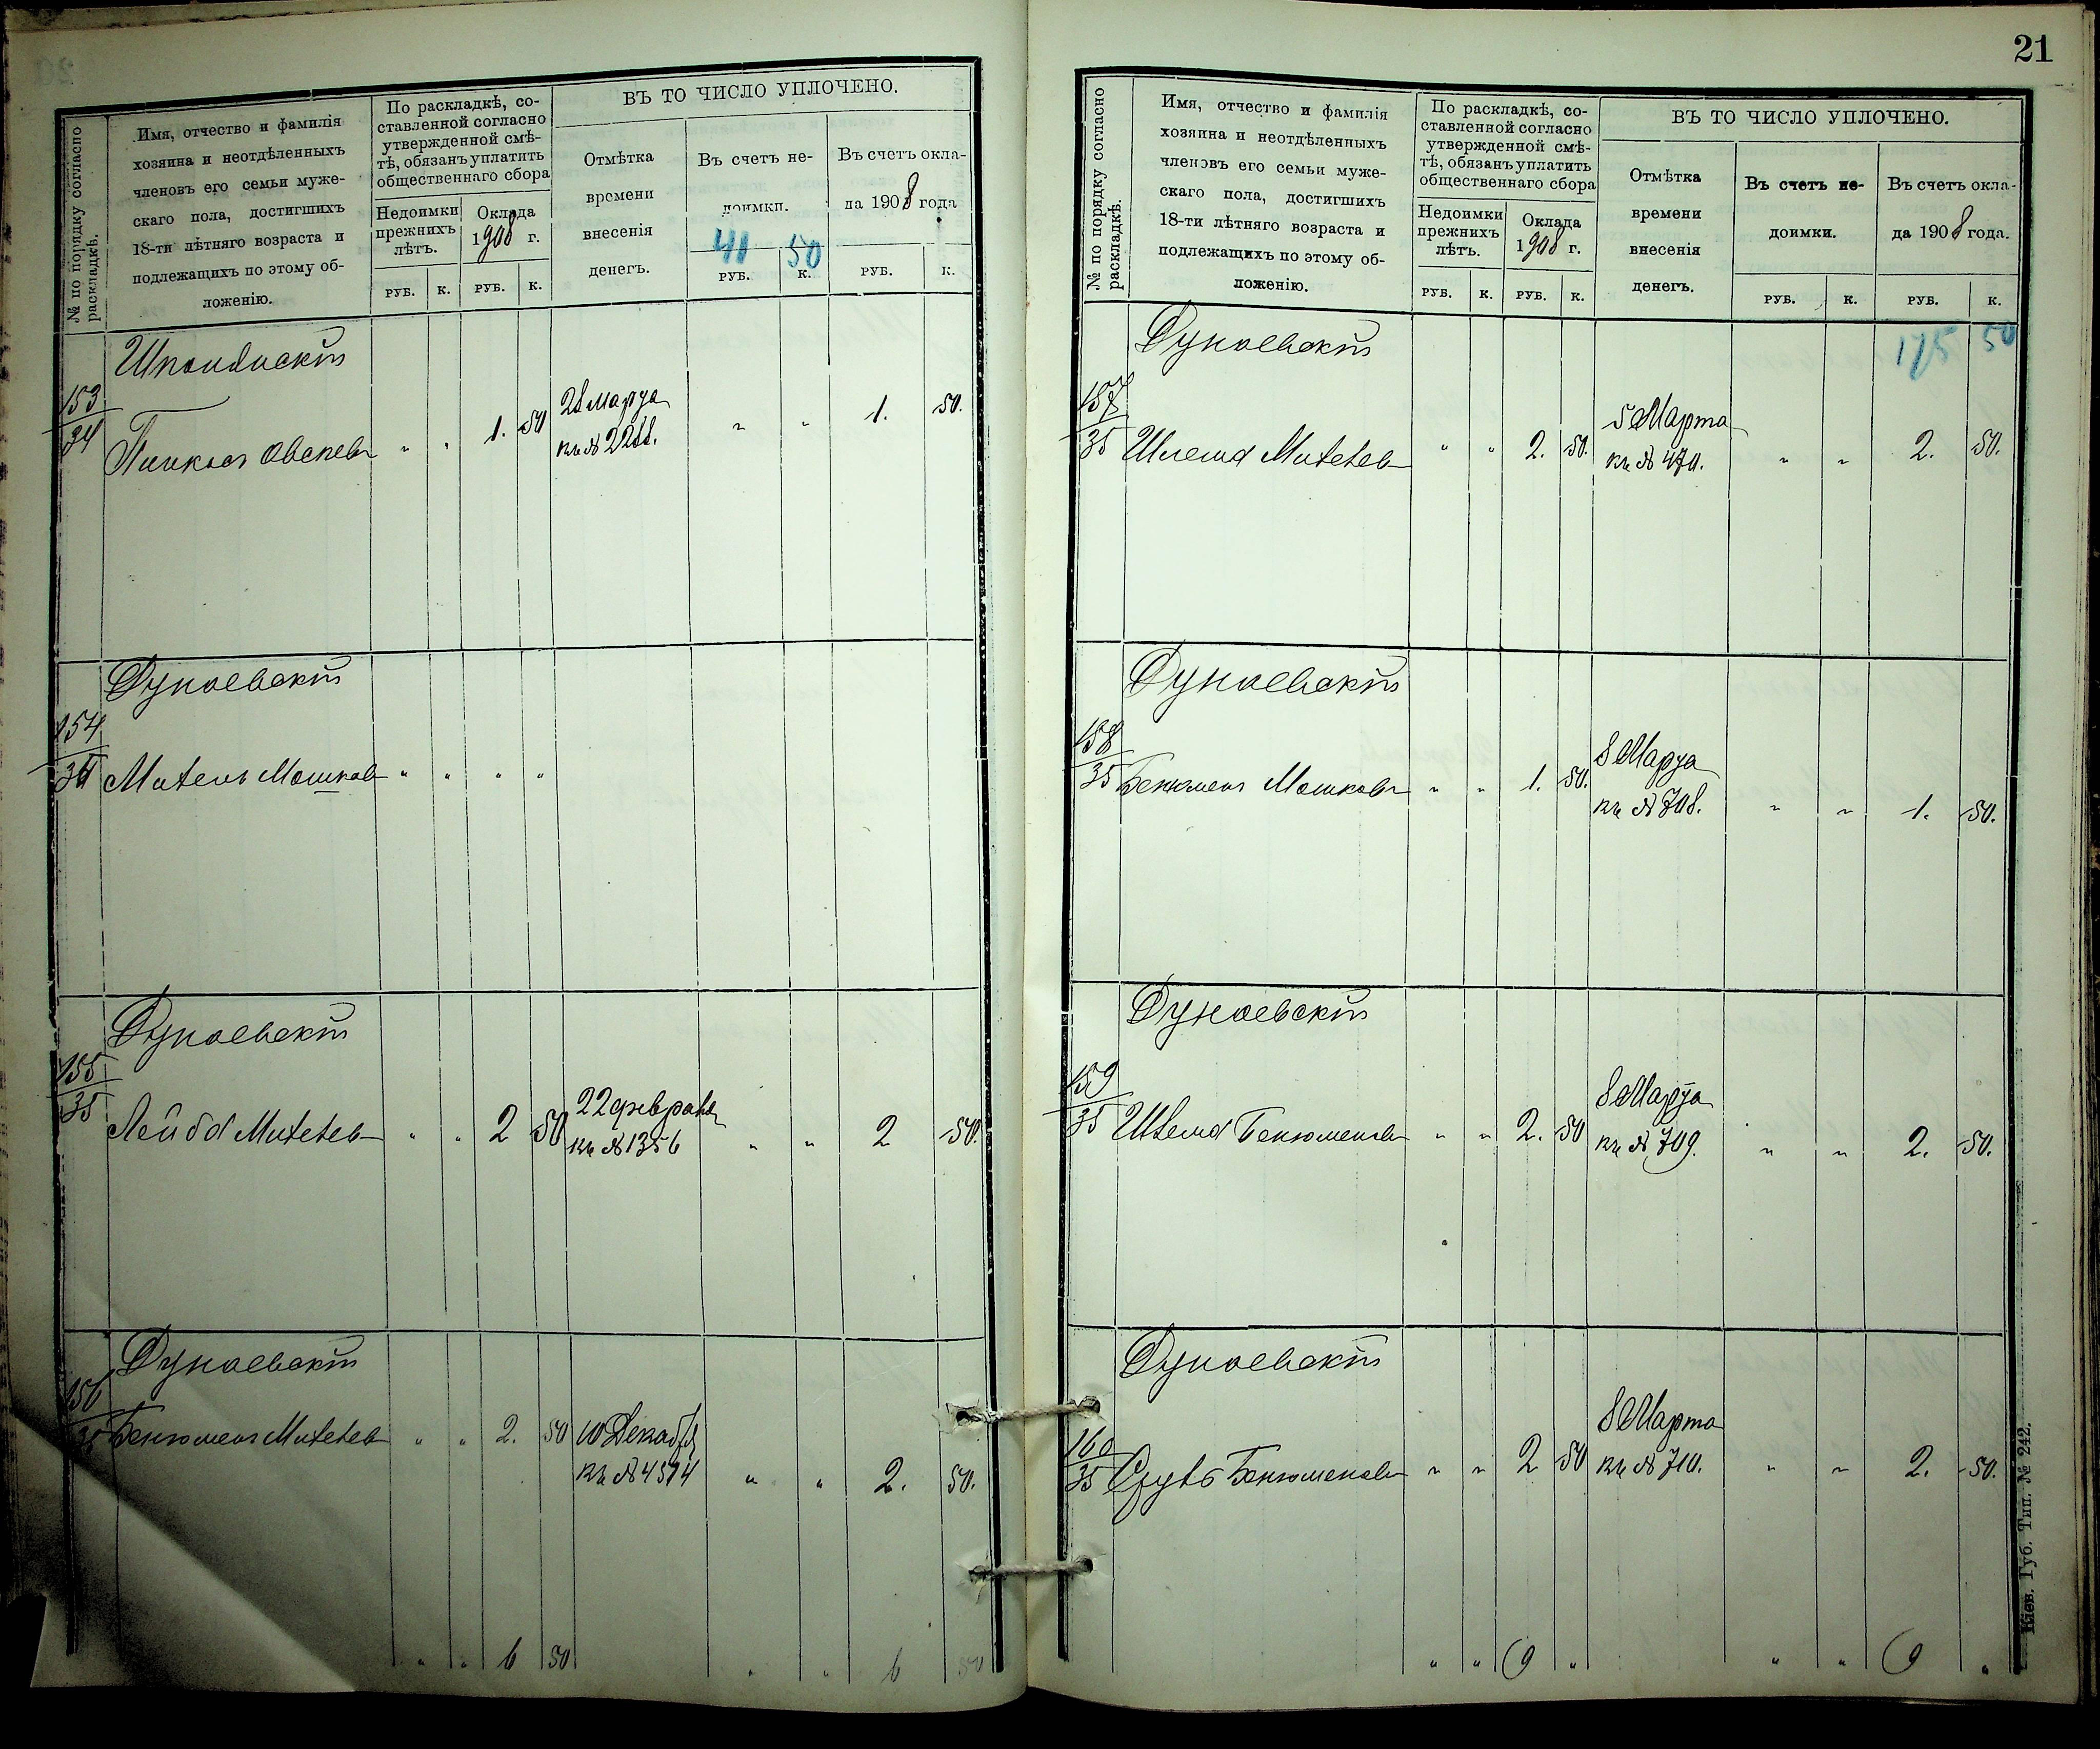 № по порядку согласно раскладкѣ.
Имя, отчество и фамилія
хозяина и неотдѣленныхъ
членовъ его семьи муже-
скаго пола, достигшихъ
18-ти лѣтняго возраста и
подлежащихъ по этому об-
ложенію.
По раскладкѣ, со-
ставленной согласно
утвержденной смѣ-
тѣ, обязанъ уплатить
общественнаго сбора
Недоимки
прежнихъ
лѣтъ.
Оклада
1908 г.
РУБ. К. РУБ. К.
ВЪ ТО ЧИСЛО УПЛОЧЕНО.
Отмѣтка
времени
внесенія
денегъ.
Въ счетъ не-
доимки.
41 50
РУБ. К.
Въ счетъ окла-
да 1908 года
РУБ. К.
153
34
Пинкасъ Овсеевъ " " 1. 50
28 Марта
къ № 2288. " " 1. 50.
Дунаевскій
154
34
Мительъ Мошковъ " " " "
Дунаевскій
155
35
Лейба Мителев " " 2 50
22 февраля
къ № 1356 " " 2 50.
Дунаевскій
156
35
Бенюменъ Мителев " " 2. 50
10 Декабря
къ № 4574 " " 2. 50.
" " 6 50 " " 6 50
21
№ по порядку согласно раскладкѣ.
Имя, отчество и фамилія
хозяина и неотдѣленныхъ
членовъ его семьи муже-
скаго пола, достигшихъ
18-ти лѣтняго возраста и
подлежащихъ по этому об-
ложенію.
По раскладкѣ, со-
ставленной согласно
утвержденной смѣ-
тѣ, обязанъ уплатить
общественнаго сбора
Недоимки
прежнихъ
лѣтъ.
Оклада
1908 г.
РУБ. К. РУБ. К.
ВЪ ТО ЧИСЛО УПЛОЧЕНО.
Отмѣтка
времени
внесенія
денегъ.
Въ счетъ не-
доимки.
РУБ. К.
Въ счетъ окла-
да 1908 года.
РУБ. К.
175 50
Дунаевскій
157
35
Шлема Мителев " " 2. 50.
5 Марта
къ № 470. " " 2. 50.
Дунаевскій
158
35
Бенюменъ Мошковъ " " 1. 50.
8 Марта
къ № 708. " " 1. 50.
Дунаевскій
159
35
Шлема Бенюменовъ " " 2. 50
8 Марта
къ № 709. " " 2. 50.
Дунаевскій
160
35
Сруль Бенюменовъ " " 2 50
8 Марта
къ № 710. " " 2. 50.
" " 9 " " " 9 "
Кіев. Губ. Тип. № 242.